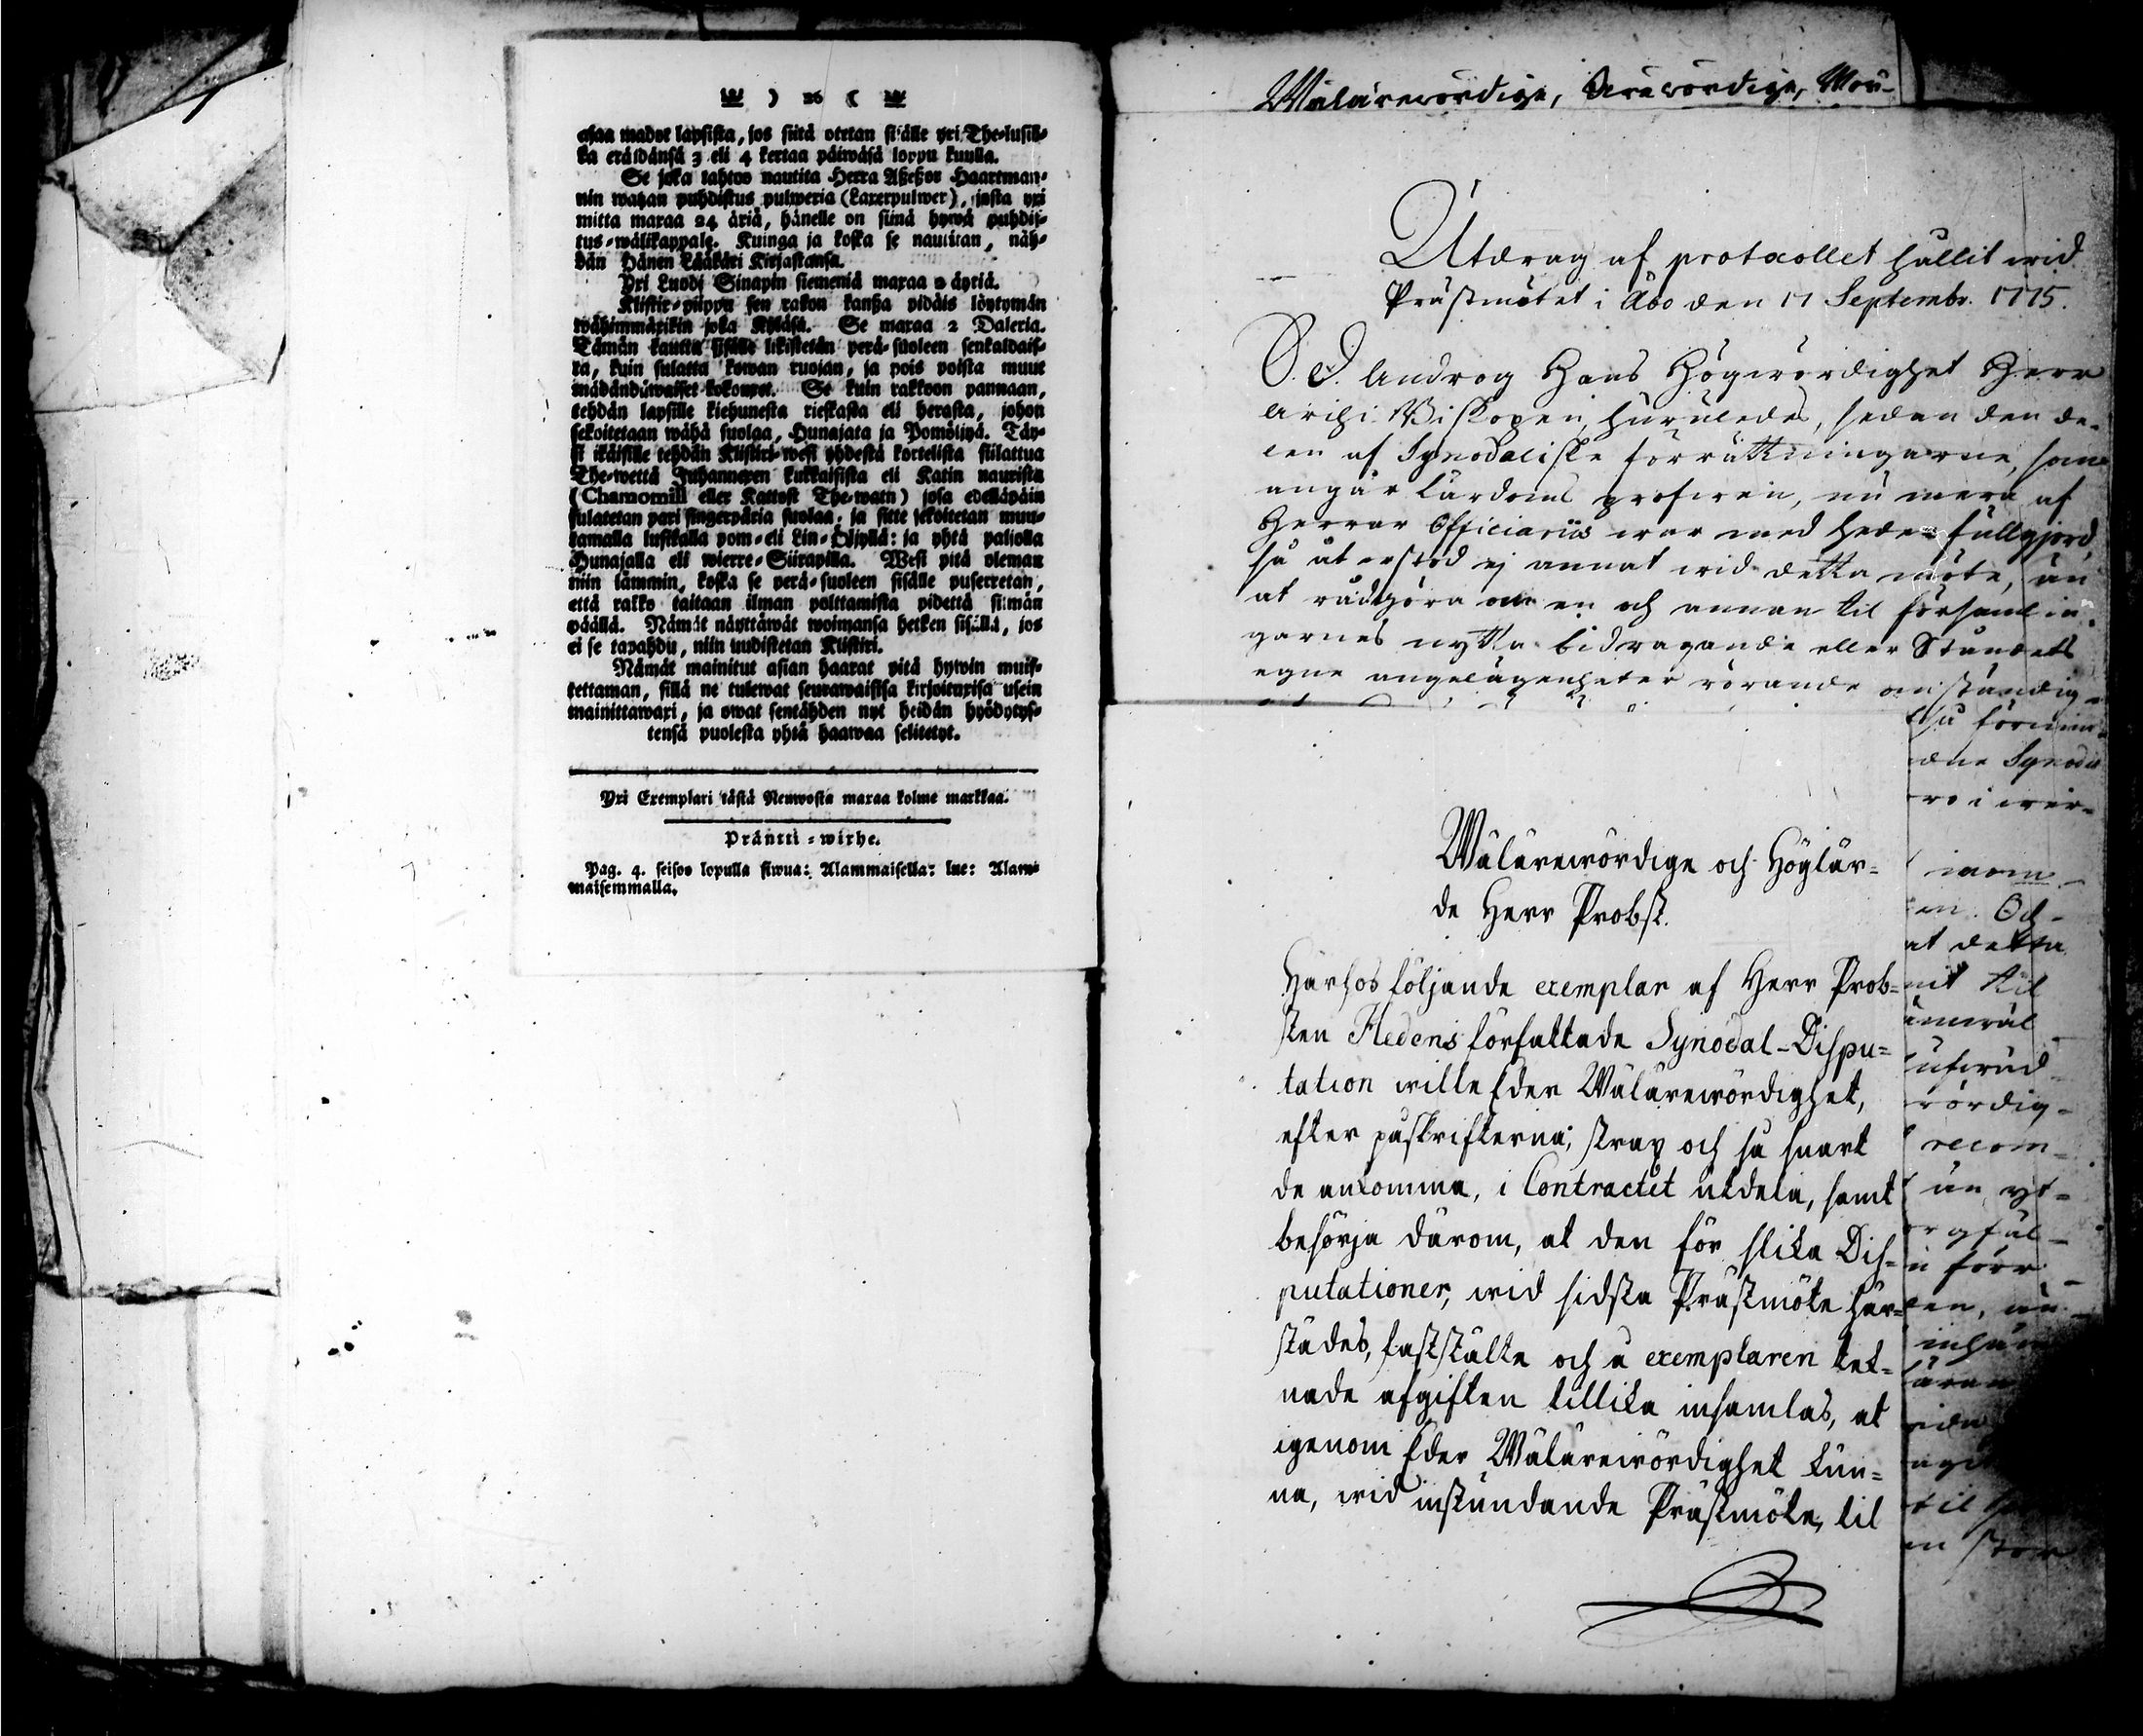 ) 26 (
ajaa madot lapsista, jos siitä otetan sisälle yxi The-lusik-
ka erältänsä 3 eli 4 kertaa päiwäsä loppu kuulla.
Se joka tahtoo nautita Herra Aßeßor Haartman-
nin watzan puhdistus pulweria (Laxerpulwer), josta yxi
mitta maxaa 24 äriä, hänelle on siinä hywä puhdis-
tus-wälikappale. Kuinga ja koska se nautitan, näh-
dän Hänen Lääkäri Kirjastansa.
Yxi Luodi Sinapin siemeniä maxaa 2 äyriä.
Klistir-piippu sen rakon kanßa pidäis löytymän
wähimmäxikin joka Kyläsä. Se maxaa 2 Daleria.
Tämän kautta sisälle likistetän perä-suoleen senkaldais-
ta, kuin sulatta kowan ruojan, ja pois poista muut
mädändüwaiset kokouxet. Se kuin rakkoon pannaan,
tehdän lapsille kiehunesta rieskasta eli herasta, johon
sekoitetaan wähä suolaa, Hunajata ja Pomöljyä. Täy-
si ikäisille tehdän Klistiri-wesi yhdestä kortelista siilattua
The-wettä Juhannexen kukkaisista eli Katin naurista
(Chamomill eller Kattost The-watn) josa edelläpäin
sulatetan pari fingerpäriä suolaa, ja sitte sekoitetan muu-
tamalla lusikalla pom-eli Lin-Öljyllä: ja yhtä paljolla
Hunajalla eli wierre-Siirapilla. Wesi pitä oleman
niin lämmin, koska se perä-suoleen sisälle puserretan,
että rakko taitaan ilman polttamista pidettä silmän
päällä. Nämät näyttäwät woimansa hetken sisällä, jos
ei se tapahdu, niin uudistetan Klistiri.
Nämät mainitut asian haarat pitä hywin muis-
tettaman, sillä ne tulewat seurawaisisa kirjoituxisa usein
mainittawaxi, ja owat sentähden nyt heidän hyödytys-
tensä puolesta yhtä haawaa selitetyt.
Yxi Exemplari tästä Neuwosta maxaa kolme markkaa.
Präntti-wirhe.
Pag. 4. seisoo lopulla siwua: Alammaisella: lue: Alam-
maisemmalla.
Wälärewördige, Ärewördige,
Utdrag af protocollet hållit wid
Prästmötet i Åbo den 17 Septembr. 1775.
S. D. Androg Hans Högwördighet Herr
Archi-Biskopen, huruledes, sedan den de-
len af Synodaliske förrättningarne, som
angår Lärdoms profwen, nu mera af
Herrar Officiariis war med heder fullgjord,
så återstod ej annat wid detta möte, än
at rådgöra om en och annan til församlin-
garnes nytta bidragande eller Ståndets
egne angelägenheter rörande omständig-
Wälärewördige och Höglär-
de Herr Probst.
Härhos följande exemplar af Herr Prob-
sten Hedens författade Synodal-Dispu-
tation wille Eder Wälärewördighet,
efter påskrifterna, strax och så snart
de ankomma, i Contractet utdela, samt
besörja därom, at den för slika Dis-
putationer, wid sidsta Prästmöte här-
städes, faststälte och å exemplaren tek-
nade afgiften tillika insamlas, at
igenom Eder Wälärewördighet kun-
na, wid instundande Prästmöte, til